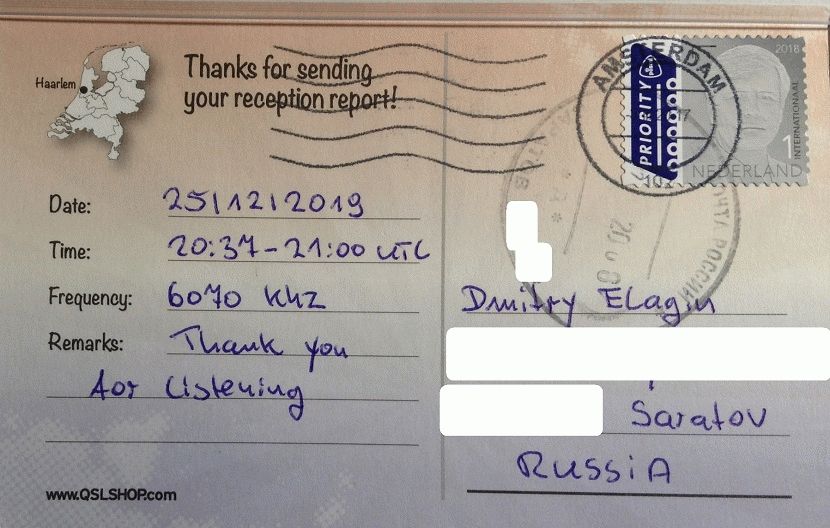 Haarlem
Thanks for sending
your reception report!
Date: 25/12/2019
Time: 20:37-21:00 UTC
Frequency: 6070 KHZ
Remarks: Thank you
for Listening
www.QSLSHOP.com
AMSTERDAM
PRIORITY
2018
INTERNATIONAAL
1
NEDERLAND
ПОЧТА РОССИИ
Dmitry Elagin
Saratov
RUSSIA